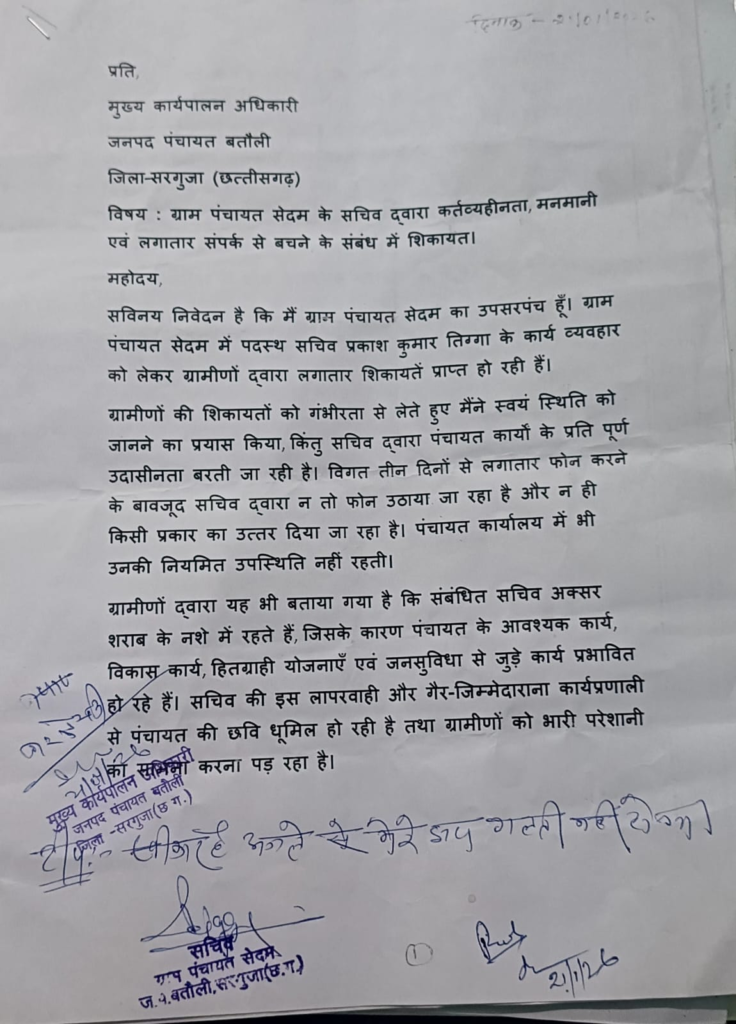 दिनांक -
प्रति,
मुख्य कार्यपालन अधिकारी
जनपद पंचायत बतौली
जिला-सरगुजा (छत्तीसगढ़)
विषय : ग्राम पंचायत सेदम के सचिव द्वारा कर्तव्यहीनता, मनमानी
एवं लगातार संपर्क से बचने के संबंध में शिकायत।
महोदय,
सविनय निवेदन है कि मैं ग्राम पंचायत सेदम का उपसरपंच हूँ। ग्राम
पंचायत सेदम में पदस्थ सचिव प्रकाश कुमार तिग्गा के कार्य व्यवहार
को लेकर ग्रामीणों द्वारा लगातार शिकायतें प्राप्त हो रही हैं।
ग्रामीणों की शिकायतों को गंभीरता से लेते हुए मैंने स्वयं स्थिति को
जानने का प्रयास किया, किंतु सचिव द्वारा पंचायत कार्यों के प्रति पूर्ण
उदासीनता बरती जा रही है। विगत तीन दिनों से लगातार फोन करने
के बावजूद सचिव द्वारा न तो फोन उठाया जा रहा है और न ही
किसी प्रकार का उत्तर दिया जा रहा है। पंचायत कार्यालय में भी
उनकी नियमित उपस्थिति नहीं रहती।
ग्रामीणों द्वारा यह भी बताया गया है कि संबंधित सचिव अक्सर
शराब के नशे में रहते हैं, जिसके कारण पंचायत के आवश्यक कार्य,
विकास कार्य, हितग्राही योजनाएँ एवं जनसुविधा से जुड़े कार्य प्रभावित
हो रहे हैं। सचिव की इस लापरवाही और गैर-जिम्मेदाराना कार्यप्रणाली
से पंचायत की छवि धूमिल हो रही है तथा ग्रामीणों को भारी परेशानी
का सामना करना पड़ रहा है।
मुख्य कार्यपालन अधिकारी
जनपद पंचायत बतौली
जिला -सरगुजा(छ ग.)
टीप:- अगले से मेरे गलती नहीं होगा।
सचिव
ग्राम पंचायत सेदम
ज.पं.बतौली,सरगुजा(छ.ग.)
1
21/1/26